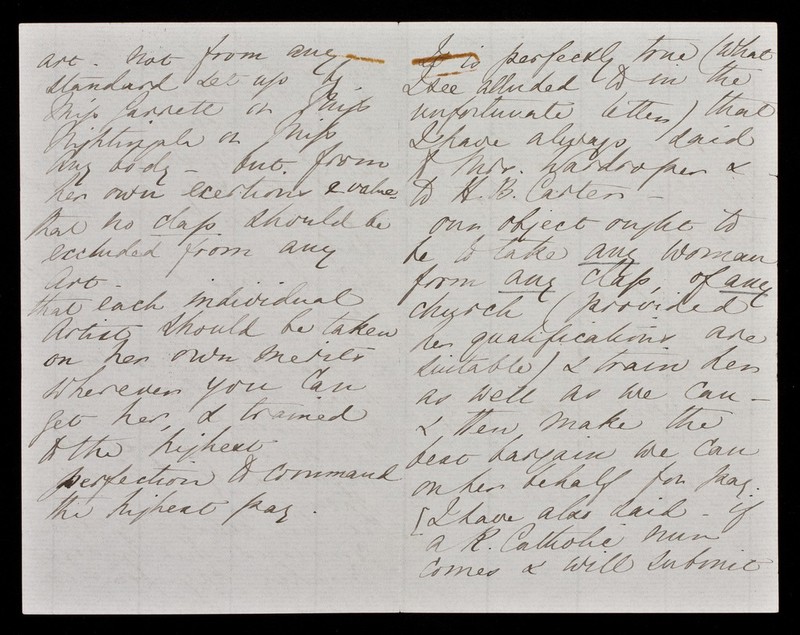 art - not from any
standard set up by
Miss Garrett or Miss
Nightingale or Miss
Any body - but from
her own exertions & value
that no class should be
excluded from any
Art -
that each individual
Artist should be taken
on her own merits
wherever you can
get her, & trained
to the highest
perfection to command
the highest pay.
It is perfectly true (what
I see alluded to in the
unfortunate letter) that
I have always said
to Mrs. Wardroper &
to H. B. Carter -
our object ought to
be to take any woman
from any class, of any
church (provided
her qualifications are
suitable) & train her
as well as we can -
& then make the
best bargain we can
on her behalf for pay.
[I have also said - if
a R. Catholic nun
comes & will submit